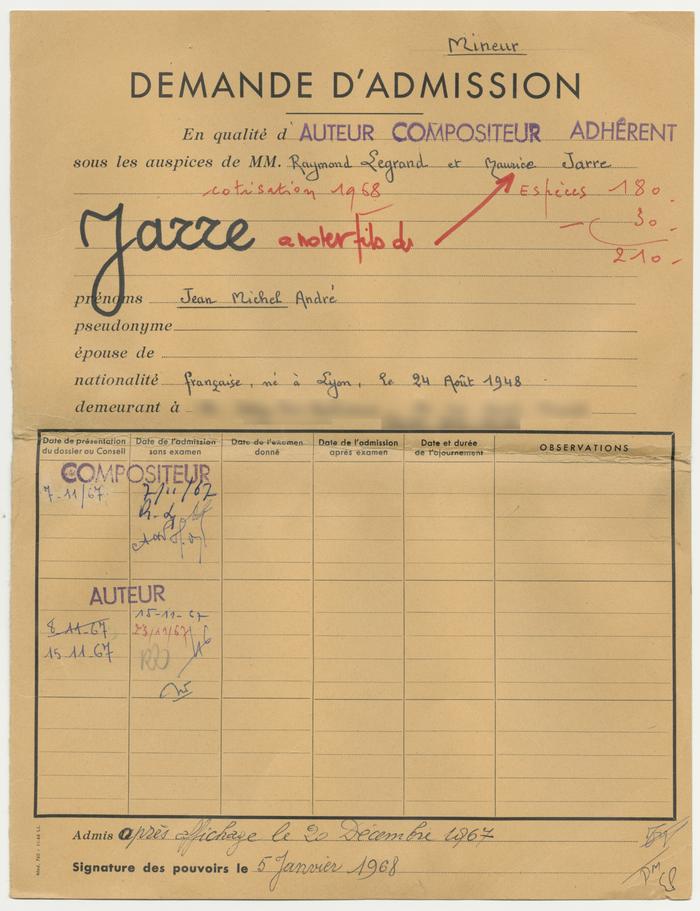 Mineur
DEMANDE D'ADMISSION
En qualité d' AUTEUR COMPOSITEUR ADHÉRENT
sous les auspices de MM. Raymond Legrand et Maurice Jarre
cotisation 1968 Espèces 180.
30.
210.
Jarre a noter fils de
prénoms Jean Michel André
pseudonyme
épouse de
nationalité française, né à Lyon, le 24 Août 1948
demeurant à
Date de présentation du dossier au Conseil
Date de l'admission sans examen
Date de l'examen donné
Date de l'admission après examen
Date et durée de l'ajournement
OBSERVATIONS
COMPOSITEUR
7-11/67 7/11/67
AUTEUR
15-11-67
8-11-67 23/11/67
15-11-67
Admis après affichage le 20 Décembre 1967
Signature des pouvoirs le 5 Janvier 1968